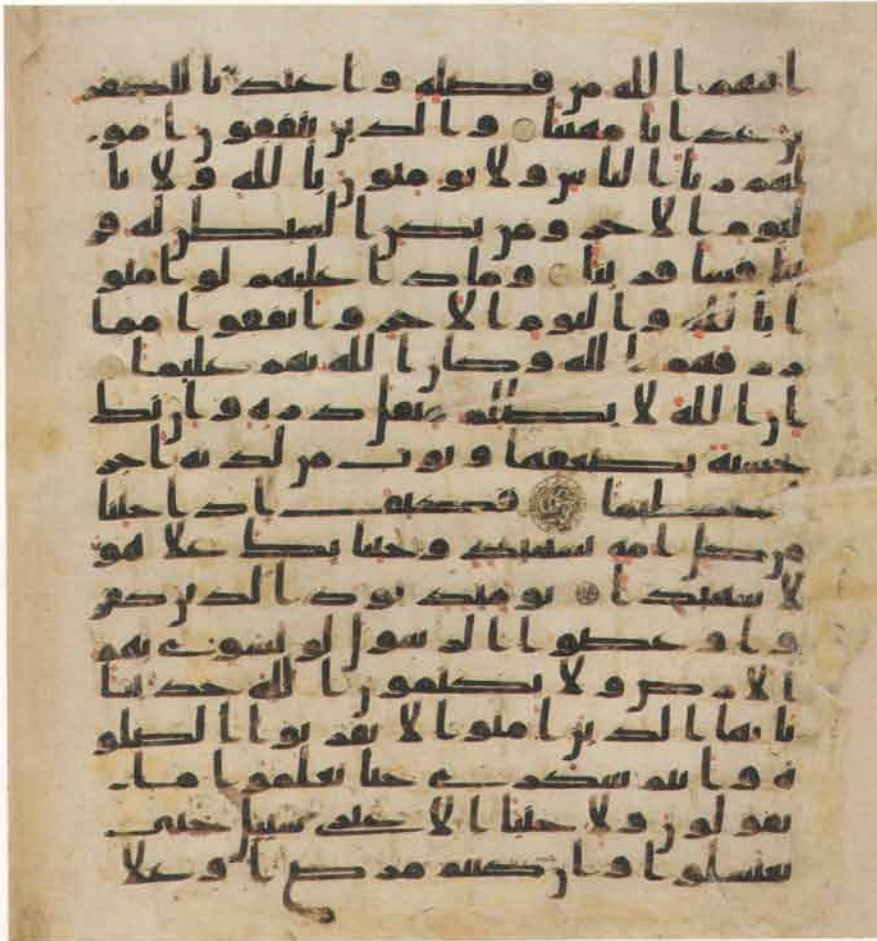 اتيهم الله من فضله واعتدنا للكفر
ين عذابا مهينا والذين ينفقون امو
لهم رئا الناس ولا يومنون بالله ولا با
ليوم الاخر ومن يكن الشيطن له ق
رينا فسا قرينا وماذا عليهم لو امنو
ا بالله واليوم الاخر وانفقوا مما
رزقهم الله وكان الله بهم عليما
ان الله لا يظلم مثقل ذره وان تك
حسنة يضعفها ويوت من لدنه اجر
عظيما فكيف اذا جئنا
من كل امه بشهيد وجئنا بك علا هو
لا شهيدا يومئذ يود الذين كفر
وا وعصوا الرسول لو تسوى بهم
الارض ولا يكتمون الله حديثا
يايها الذين امنوا لا تقربوا الصلو
ة وانتم سكرى حتا تعلموا ما
تقولون ولا جنبا الا عبرى سبيل حتى
تغتسلوا وان كنتم مرضى او علا